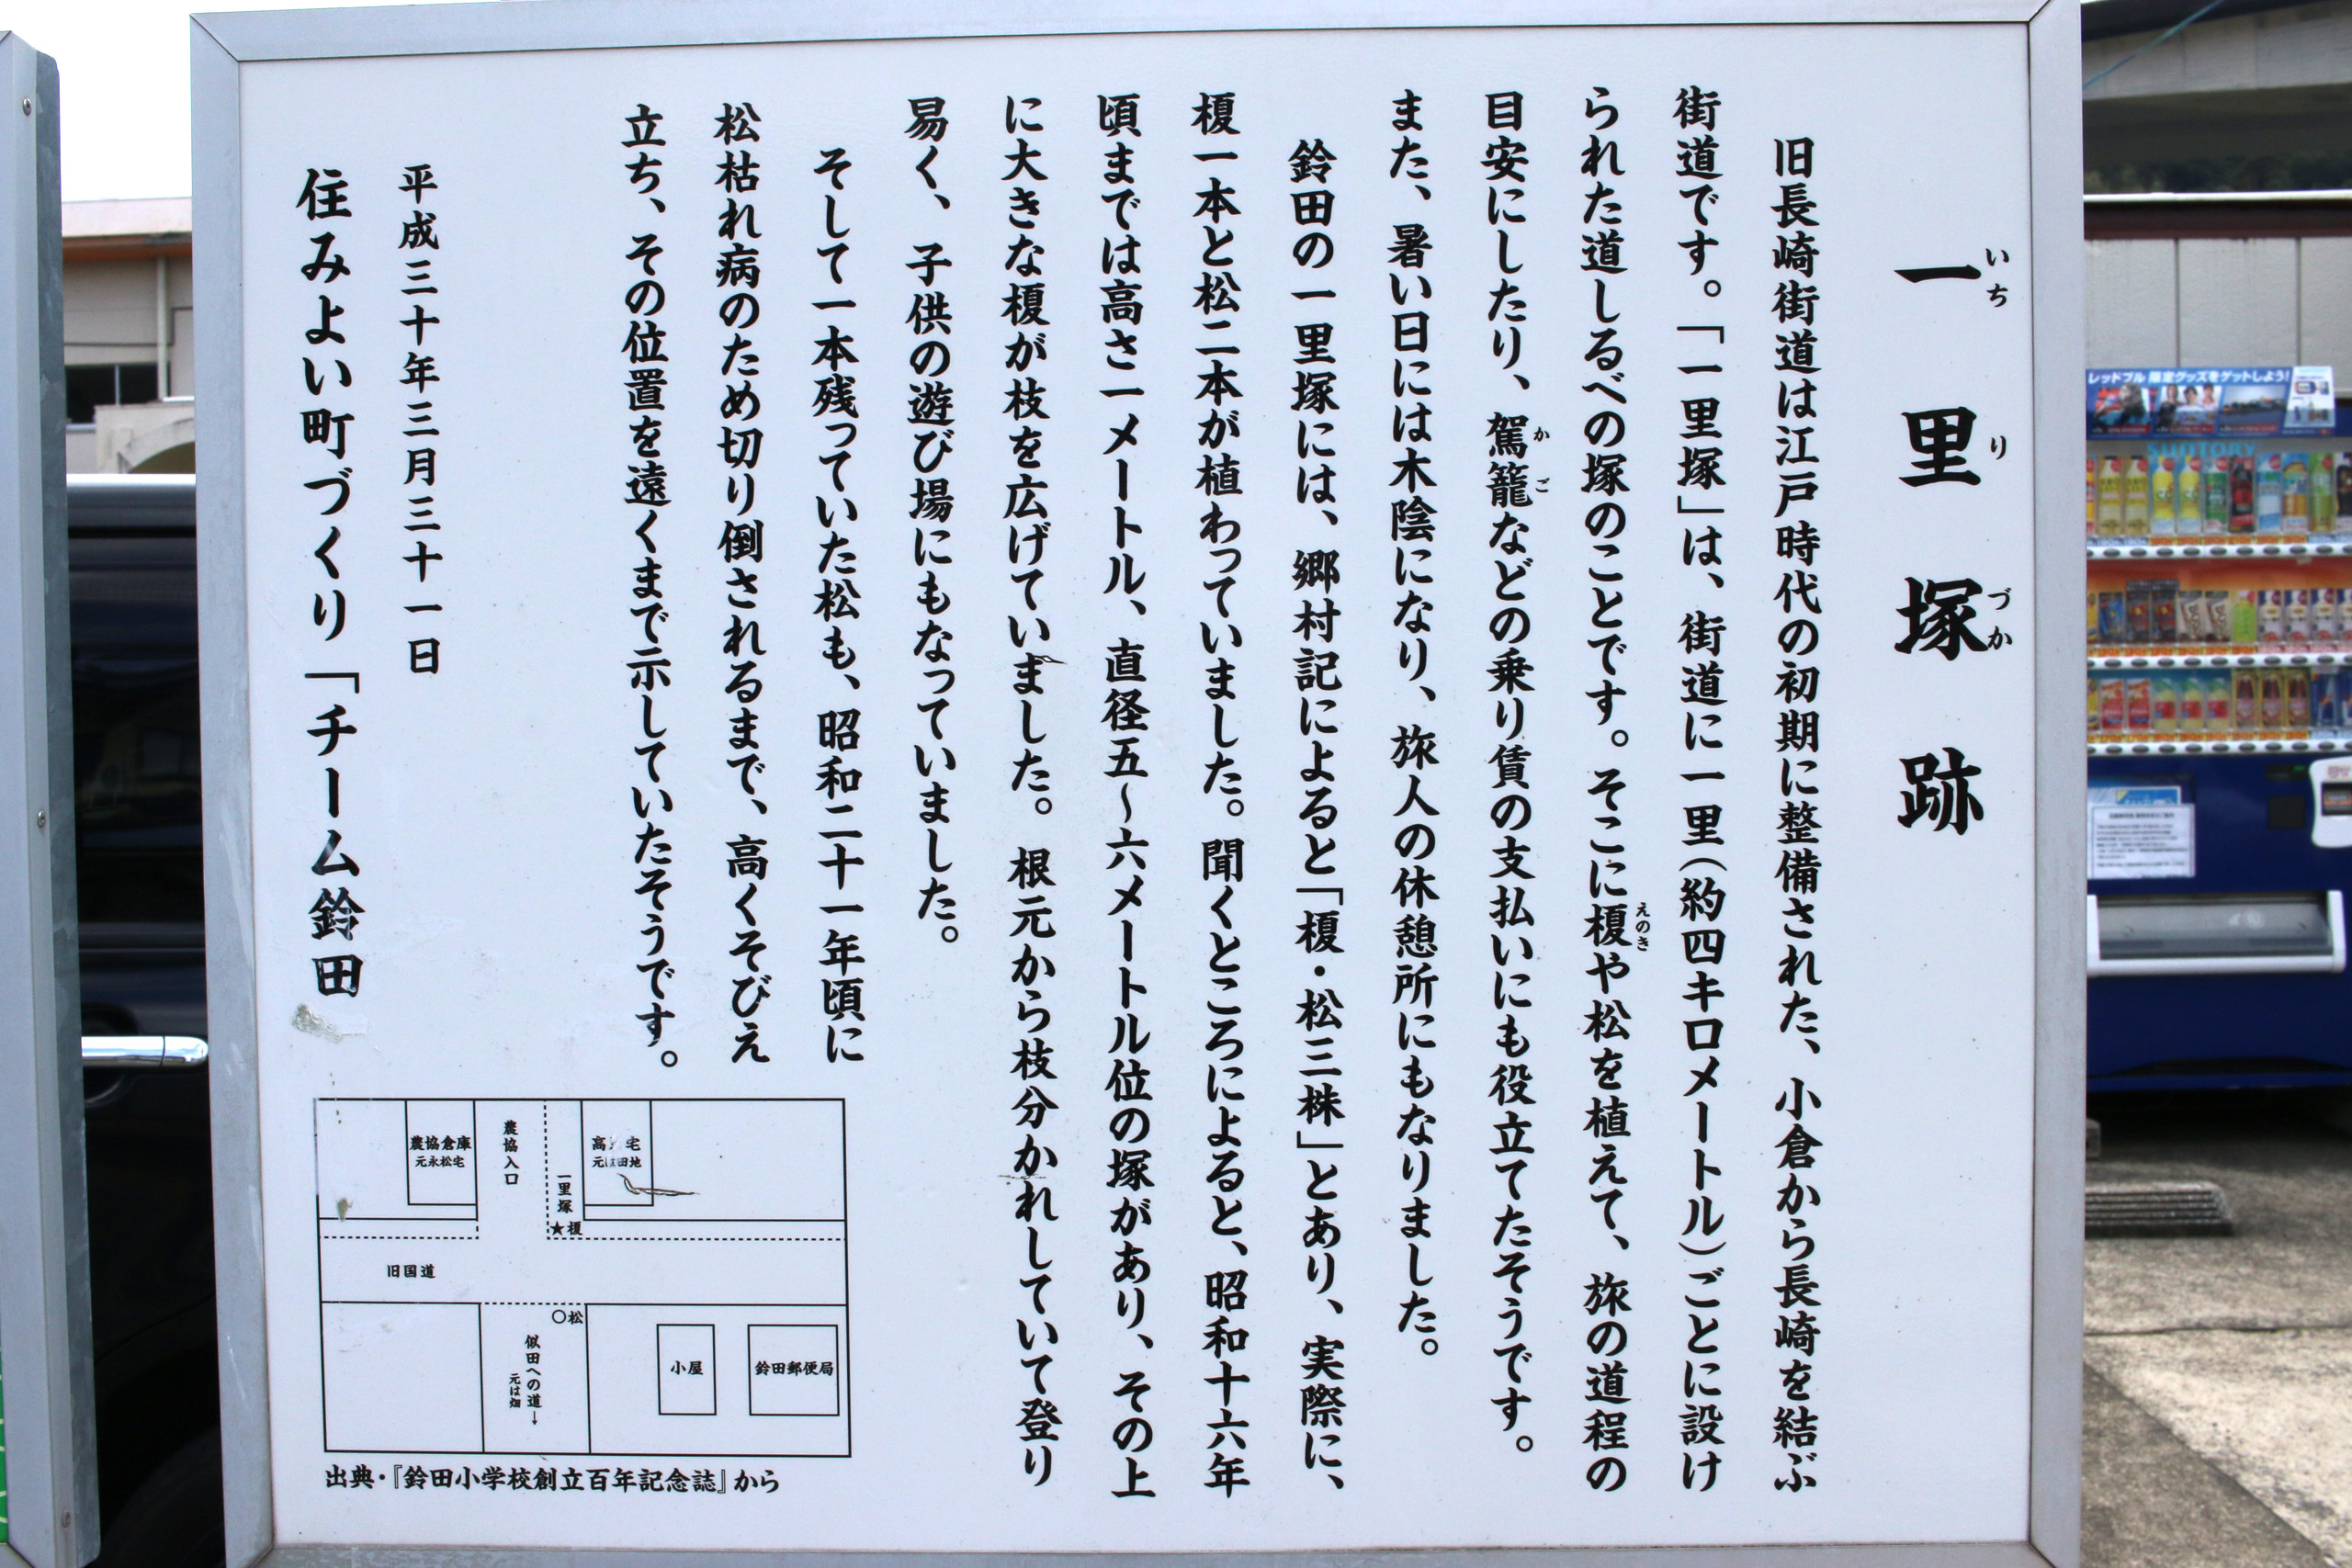 一里塚跡
いち
り
づか
旧長崎街道は江戸時代の初期に整備された、小倉から長崎を結ぶ
街道です。「一里塚」は、街道に一里(約四キロメートル)ごとに設け
られた道しるべの塚のことです。そこに榎や松を植えて、旅の道程の
えのき
目安にしたり、駕籠などの乗り賃の支払いにも役立てたそうです。
かご
また、暑い日には木陰になり、旅人の休憩所にもなりました。
鈴田の一里塚には、郷村記によると「榎・松三株」とあり、実際に、
榎一本と松二本が植わっていました。聞くところによると、昭和十六年
頃までは高さ一メートル、直径五〜六メートル位の塚があり、その上
に大きな榎が枝を広げていました。根元から枝分かれしていて登り
易く、子供の遊び場にもなっていました。
そして一本残っていた松も、昭和二十一年頃に
松枯れ病のため切り倒されるまで、高くそびえ
立ち、その位置を遠くまで示していたそうです。
平成三十年三月三十一日
住みよい町づくり「チーム鈴田
農協倉庫
元永松宅
農協入口
一里塚
★榎
高 宅
元は田地
旧国道
○松
似田への道→
元は畑
小屋
鈴田郵便局
出典・『鈴田小学校創立百年記念誌』から
レッドブル 限定グッズをゲットしよう!
SUNTORY